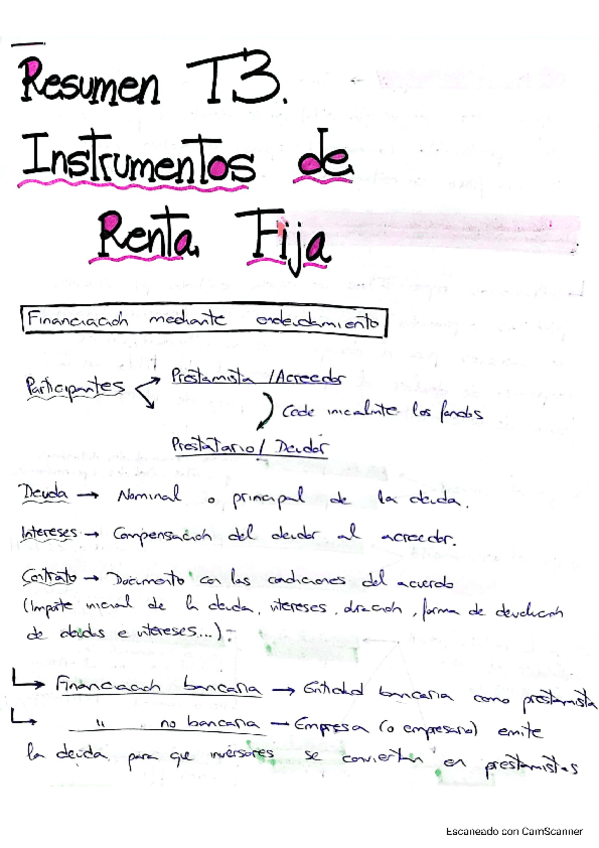 Resumen T3.
Instrumentos de
Renta Fija
Financiación mediante endeudamiento
Participantes
Prestamista / Acreedor
Cede inicialmte los fondos
Prestatario / Deudor
Deuda → Nominal o principal de la deuda.
Intereses → Compensación del deudor al acreedor.
Contrato → Documento con las condiciones del acuerdo
(Importe inicial de la deuda, intereses, duración, forma de devolución
de deudas e intereses...)-
↳ Financiación bancaria → Entidad bancaria como prestamista
↳ " no bancaria → Empresa (o empresario) emite
la deuda para que inversores se conviertan en prestamistas
Escaneado con CamScanner